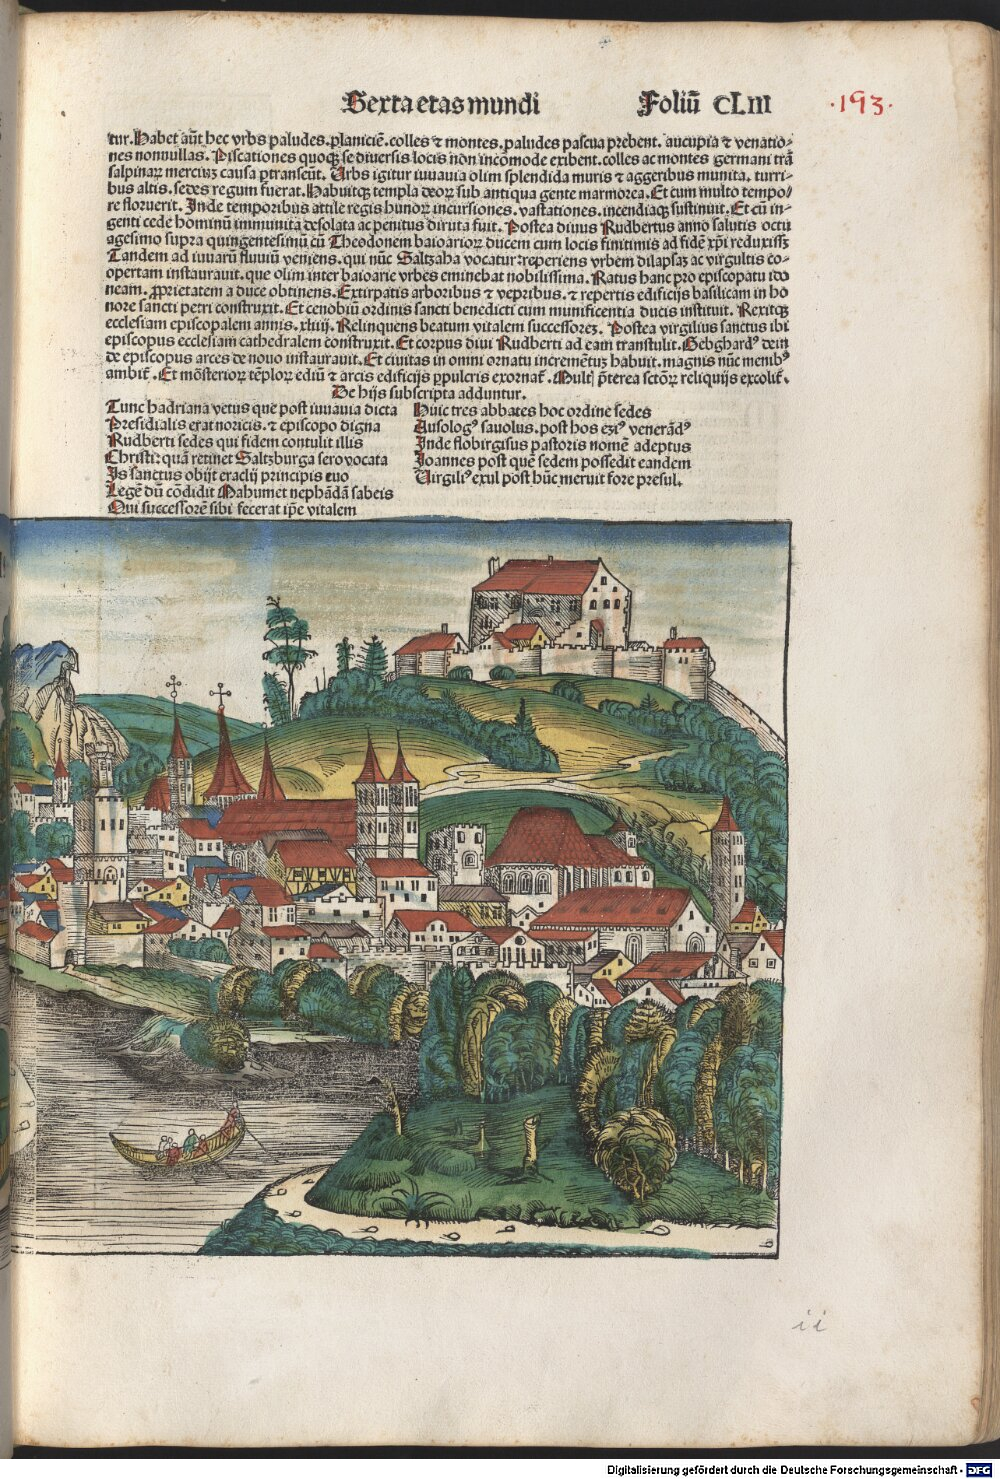 Sexta etas mundi Foliū CLIII ·193·
tur. Habet aūt hec vrbs paludes. planiciē. colles ⁊ montes. paludes pascua prebent. aucupia ⁊ venatio-
nes nonnullas. Piscationes quoqꝫ se diuersis locis non incōmode exibent. colles ac montes germani trā
salpinaꝝ merciuꝫ causa ꝑtranseūt. Urbs igitur iuuauia olim splendida muris ⁊ aggeribus munita. turri-
bus altis. sedes regum fuerat. Habuitqꝫ templa deoꝝ sub antiqua gente marmorea. Et cum multo tempo/
re floruerit. Inde temporibus attile regis hunoꝝ incursiones. vastationes. incendiaqꝫ sustinuit. Et cū in-
genti cede hominū immunita desolata ac penitus diruta fuit. Postea diuus Rudbertus anno salutis octu
agesimo supra quingentesimū cū Theodonem baioarioꝝ ducem cum locis finitimis ad fidē xp̄i reduxissꝫ
Tandem ad iuuarū fluuiū veniens. qui nūc Saltzaha vocatur: reperiens vrbem dilapsaꝫ ac virgultis co-
opertam instaurauit. que olim inter baioarie vrbes eminebat nobilissima. Ratus hanc pro episcopatu ido
neam. ꝓprietatem a duce obtinens. Extirpatis arboribus ⁊ vepribus. ⁊ repertis edificijs basilicam in ho
nore sancti petri construxit. Et cenobiū ordinis sancti benedicti cum munificentia ducis instituit. Rexitqꝫ
ecclesiam episcopalem annis. xliiij. Relinquens beatum vitalem successoreꝫ. Postea virgilius sanctus ibi
episcopus ecclesiam cathedralem construxit. Et corpus diui Rudberti ad eam transtulit. Gebghardꝰ dein
de episcopus arces de nouo instaurauit. Et ciuitas in omni ornatu incremētuꝫ habuit. magnis nūc menibꝰ
ambit̄. Et mōsterioꝝ tēploꝝ ediū ⁊ arcis edificijs ꝑpulcris exornat̄. Mult p̄terea sctōꝝ reliquijs excolit̄.
De hijs subscripta adduntur.
Tunc hadriana vetus que post iuuauia dicta
Presidialis erat noricis. ⁊ episcopo digna
Rudberti sedes qui fidem contulit illis
Christi: quā retinet Saltzburga sero vocata
Is sanctus obijt eraclij principis euo
Legē dū cōdidit Mahumet nephādā sabeis
Qui successorē sibi fecerat ip̄e vitalem
Huic tres abbates hoc ordine sedes
Ausologꝰ sauolus. post hos eziꝰ venerādꝰ
Inde flobirgisus pastoris nomē adeptus
Joannes post quē sedem possedit eandem
Uirgiliꝰ exul post hūc meruit fore presul.
ii
Digitalisierung gefördert durch die Deutsche Forschungsgemeinschaft - DFG